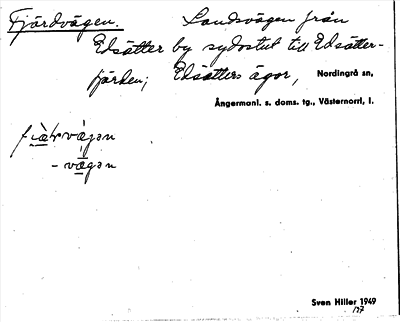 Fjärdvägen. Landsvägen från
Edsätter by sydost ut till Edsätter-
fjärden; Edsätters ägor, Nordingrå sn,
Ångermanl. s. doms. tg., Västernorrl. l.
-vägan
Sven Hiller 1949